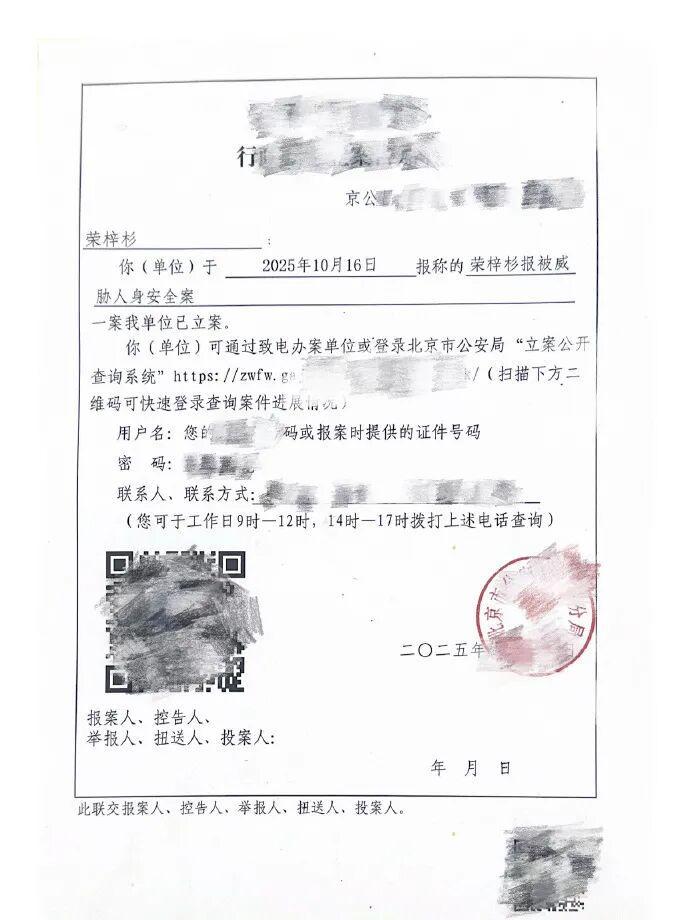 行
京公
荣梓杉 :
你（单位）于 2025年10月16日 报称的 荣梓杉报被威
胁人身安全案
一案我单位已立案。
你（单位）可通过致电办案单位或登录北京市公安局“立案公开
查询系统”https://zwfw.ga k/（扫描下方二
维码可快速登录查询案件进展情况）
用户名：您的 码或报案时提供的证件号码
密 码：
联系人、联系方式：
（您可于工作日9时—12时，14时—17时拨打上述电话查询）
北京市公 分局
二〇二五年 日
报案人、控告人、
举报人、扭送人、投案人：
年 月 日
此联交报案人、控告人、举报人、扭送人、投案人。